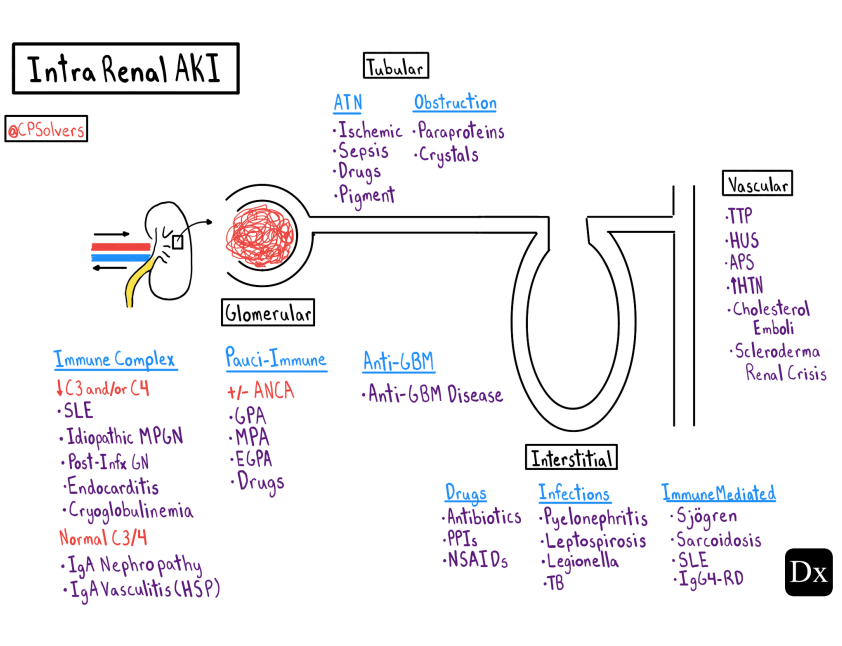 Intra Renal AKI
@CPSolvers
Tubular
ATN
·Ischemic
·Sepsis
·Drugs
·Pigment
Obstruction
·Paraproteins
·Crystals
Vascular
·TTP
·HUS
·APS
·↑HTN
·Cholesterol
Emboli
·Scleroderma
Renal Crisis
Glomerular
Immune Complex
↓C3 and/or C4
·SLE
·Idiopathic MPGN
·Post-Infx GN
·Endocarditis
·Cryoglobulinemia
Normal C3/4
·IgA Nephropathy
·IgA Vasculitis (HSP)
Pauci-Immune
+/- ANCA
·GPA
·MPA
·EGPA
·Drugs
Anti-GBM
·Anti-GBM Disease
Interstitial
Drugs
·Antibiotics
·PPIs
·NSAIDs
Infections
·Pyelonephritis
·Leptospirosis
·Legionella
·TB
Immune Mediated
·Sjögren
·Sarcoidosis
·SLE
·IgG4-RD
Dx